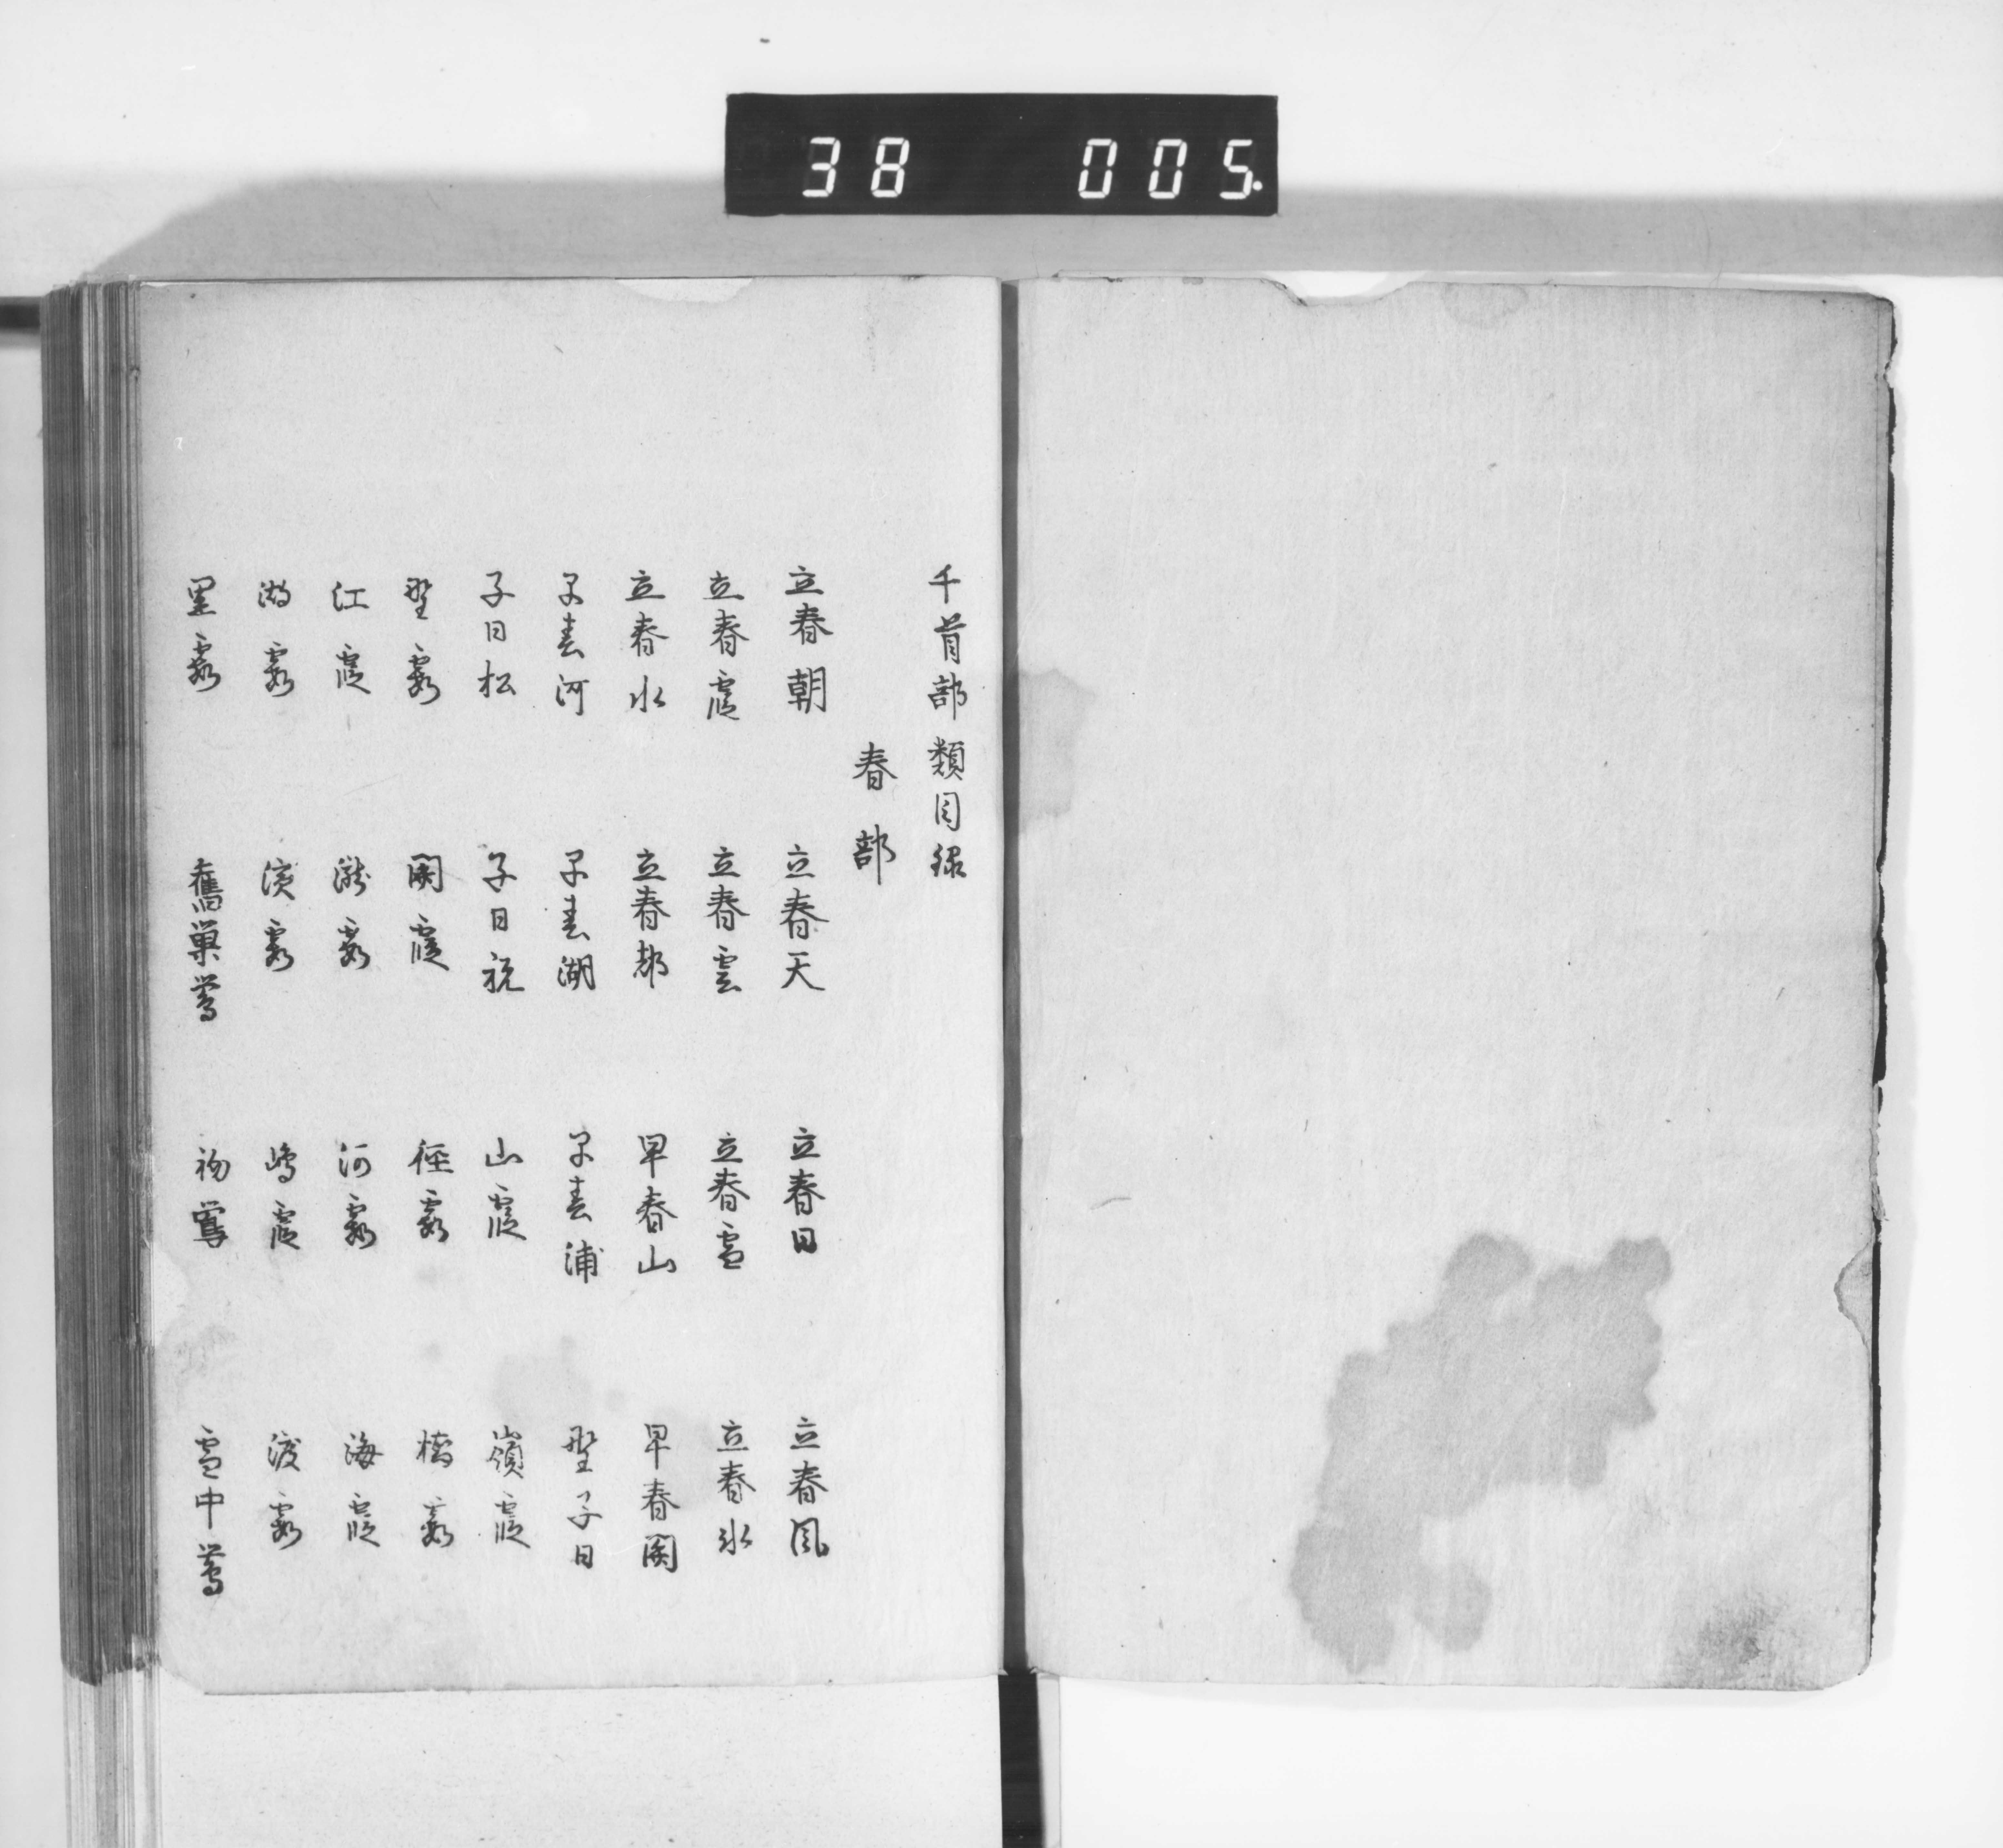 38 005
千首部類目録
春部
立春朝 立春天 立春日 立春風
立春霞 立春雲 立春雪 立春氷
立春水 立春都 早春山 早春関
早春河 早春湖 早春浦 野子日
子日松 子日祝 山霞 嶺霞
野霞 関霞 径霞 橋霞
江霞 瀧霞 河霞 海霞
霞 濱霞 嶋霞 渡霞
里霞 舊巣鶯 初鶯 雪中鶯